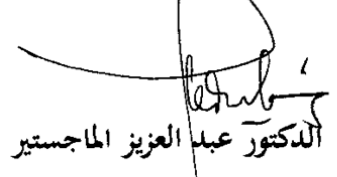 الدكتور عبد العزيز الماجستير